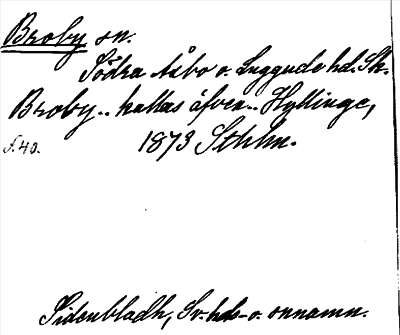 Broby sn.
Södra Åsbo o. Luggude hd. Sk.
Broby.. kallas äfven.. Hyllinge,
s. 40. 1873 Sthlm.
Sidenbladh, Sv. hds- o. snnamn.